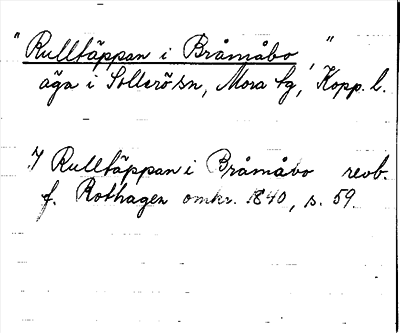 "Rulltäppan i Bråmåbo"
äga i Sollerö sn, Mora tg, Kopp. l.
7 Rulltäppan i Bråmåbo revb.
f. Rothagen omkr. 1840, s. 59.